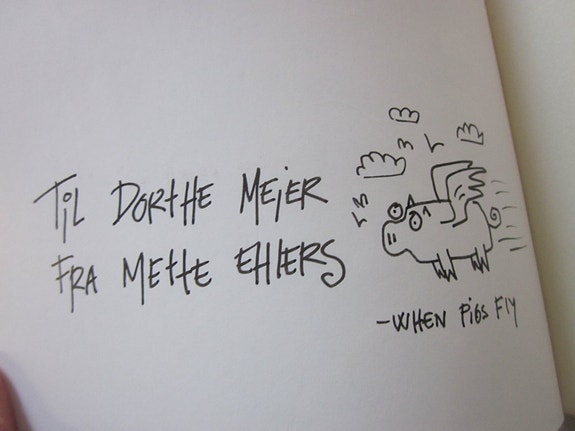 TiL DORTHE MEJER
FRA METTE EHLERS
-WHEN PiGS FLY